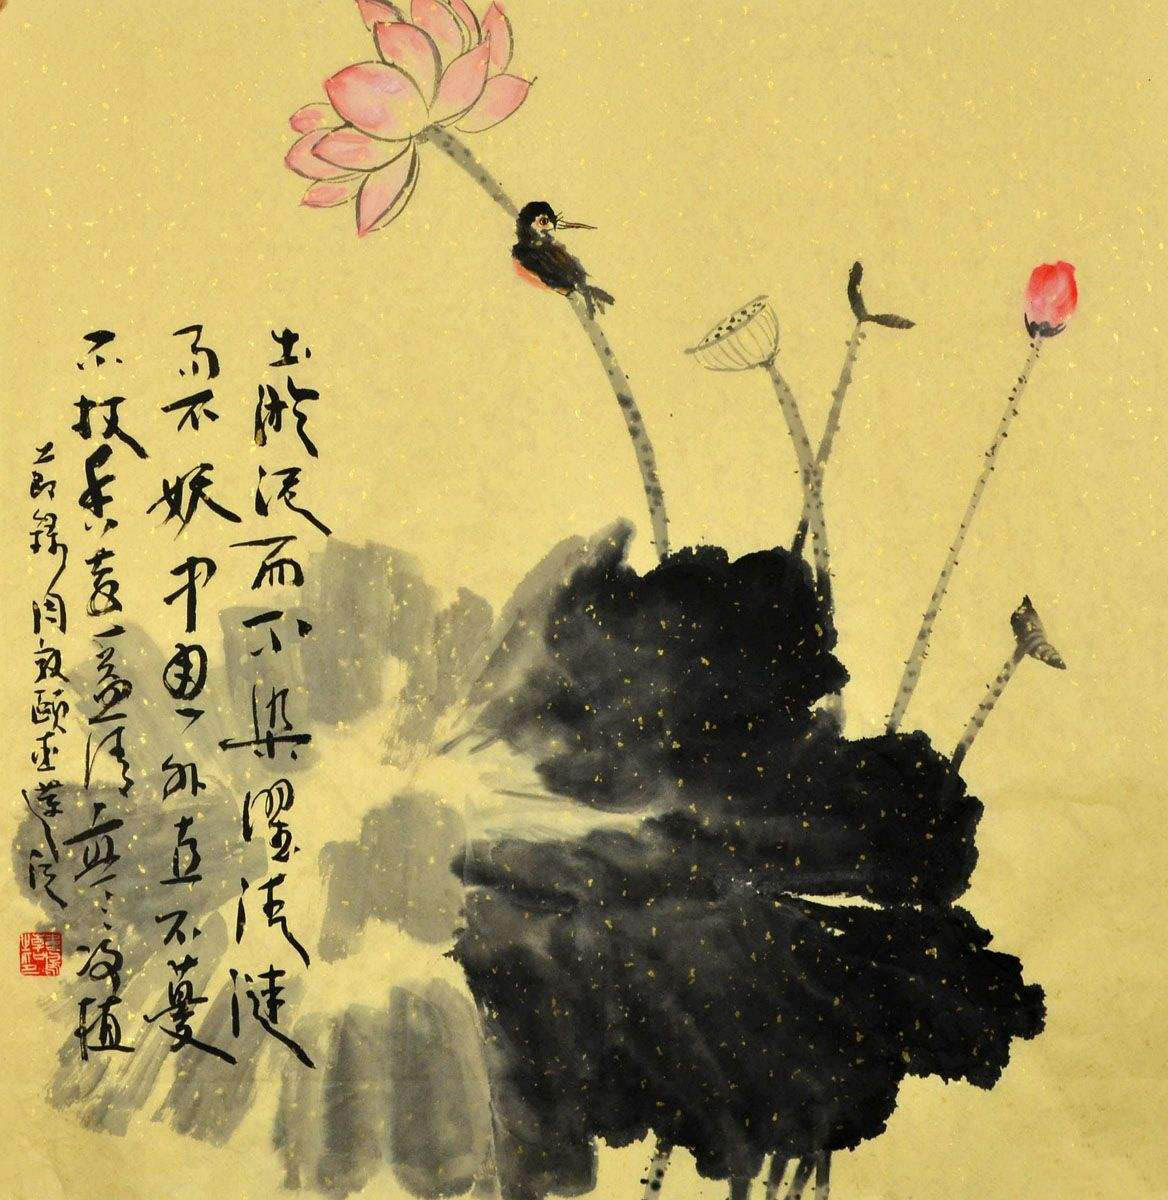 出淤泥而不染濯清漣
而不妖中通外直不蔓
不枝香遠益清亭亭净植
郎錄周敦頤爱蓮说